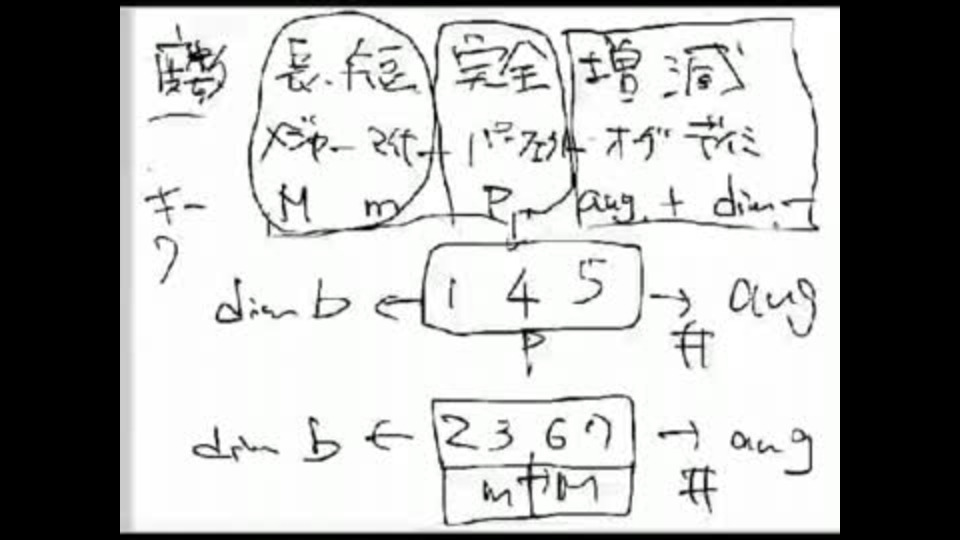 長・短 完全 増 減
メジャー マイナー パーフェクト オグ ディミ
M m P aug + dim -
キー
ク
dim b ← 1 4 5 → # aug
P
dim b ← 2 3 6 7 → # aug
m ↔ M